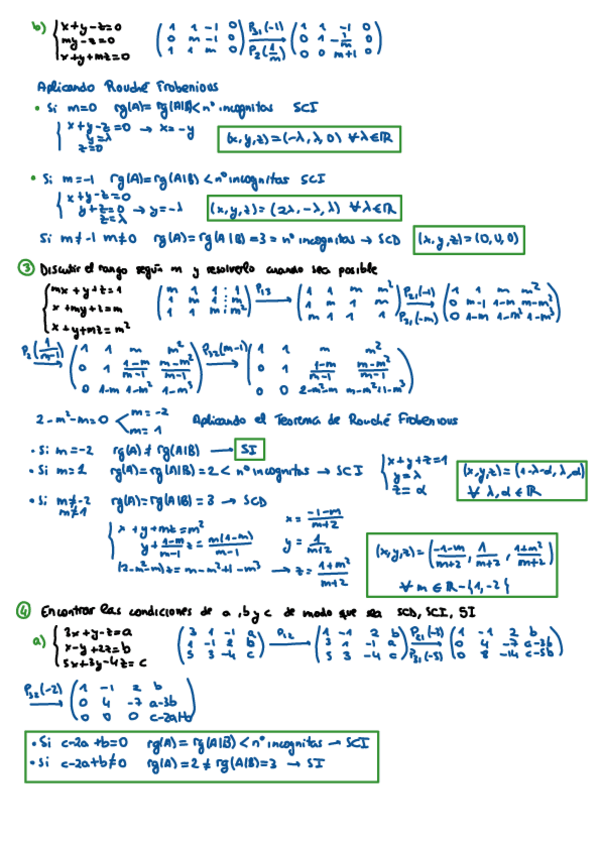 b) { x+y-z=0
my-z=0
x+y+mz=0
( 1 1 -1 0
0 m -1 0
1 1 m 0 ) P31(-1) P2(1/m) ( 1 1 -1 0
0 1 -1/m 0
0 0 m+1 0 )
Aplicando Rouché Frobenious
• Si m=0 rg(A)= rg(A|B)<nº incognitas SCI
{ x+y-z=0 → x=-y
y=λ
z=0
(x,y,z)=(-λ,λ,0) ∀λ∈ℝ
• Si m=-1 rg(A)=rg(A|B) < nº incognitas SCI
{ x+y-z=0
y+z=0 → y=-λ
z=λ
(x,y,z)=(2λ,-λ,λ) ∀λ∈ℝ
Si m≠-1 m≠0 rg(A)=rg(A|B)=3= nº incognitas → SCD (x,y,z)=(0,0,0)
③ Discutir el rango según m y resolverlo cuando sea posible
{ mx+y+z=1
x+my+z=m
x+y+mz=m²
( m 1 1 1
1 m 1 m
1 1 m m² ) P13 ( 1 1 m m²
1 m 1 m
m 1 1 1 ) P21(-1) P31(-m) ( 1 1 m m²
0 m-1 1-m m-m²
0 1-m 1-m² 1-m³ )
P2(1/m-1) ( 1 1 m m²
0 1 1-m/m-1 m-m²/m-1
0 1-m 1-m² 1-m³ ) P32(m-1) ( 1 1 m m²
0 1 1-m/m-1 m-m²/m-1
0 0 2-m²-m m-m²+1-m³ )
2-m²-m=0 < m=-2
m=1
Aplicando el Teorema de Rouché Frobenious
• Si m=-2 rg(A)≠rg(A|B) → SI
• Si m=1 rg(A)=rg(A|B)=2< nº incognitas → SCI { x+y+z=1
y=λ
z=α
(x,y,z)=(1-λ-α,λ,α)
∀ λ,α ∈ ℝ
• Si m≠-2 rg(A)=rg(A|B)=3 → SCD
m≠1
{ x+y+mz=m²
y+ 1-m/m-1 z= m(1-m)/m-1
(2-m²-m)z=m-m²+1-m³ → z= 1+m²/m+2
x= -1-m/m+2
y= 1/m+2
(x,y,z)=( -1-m/m+2 , 1/m+2 , 1+m²/m+2 )
∀ m ∈ ℝ-{1,-2}
④ Encontrar las condiciones de a,b y c de modo que sea SCD, SCI, SI
a) { 3x+y-z=a
x-y+2z=b
5x+3y-4z=c
( 3 1 -1 a
1 -1 2 b
5 3 -4 c ) P12 ( 1 -1 2 b
3 1 -1 a
5 3 -4 c ) P21(-3) P31(-5) ( 1 -1 2 b
0 4 -7 a-3b
0 8 -14 c-5b )
P32(-2) ( 1 -1 2 b
0 4 -7 a-3b
0 0 0 c-2a+b )
• Si c-2a+b=0 rg(A)= rg(A|B)<nº incognitas → SCI
• Si c-2a+b≠0 rg(A)=2≠rg(A|B)=3 → SI